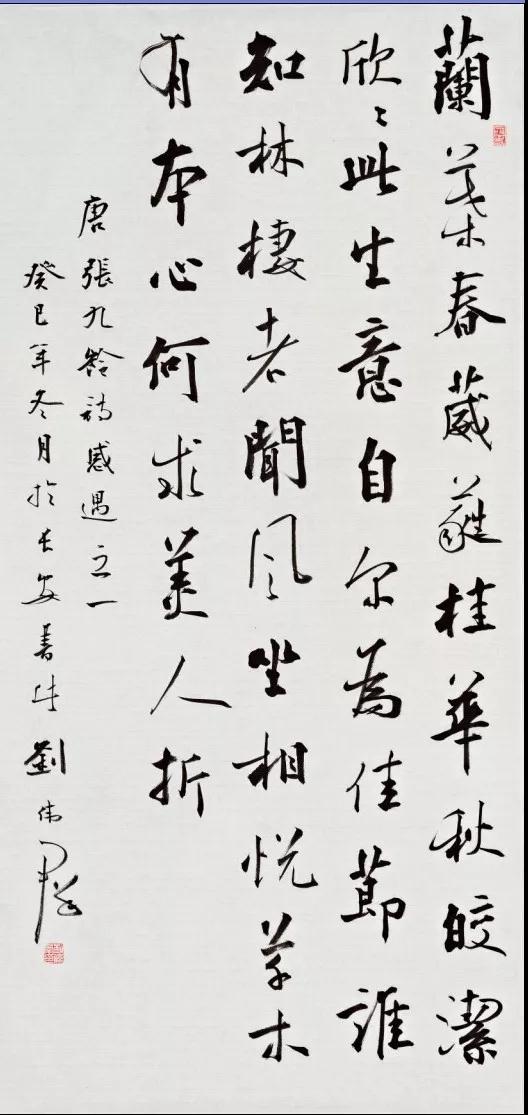 蘭葉春葳蕤桂華秋皎潔
欣〻此生意自尔為佳節誰
知林棲者聞風坐相悅草木
有本心何求美人折
唐張九齡詩感遇之一
癸巳年冬月於長安書 劉偉